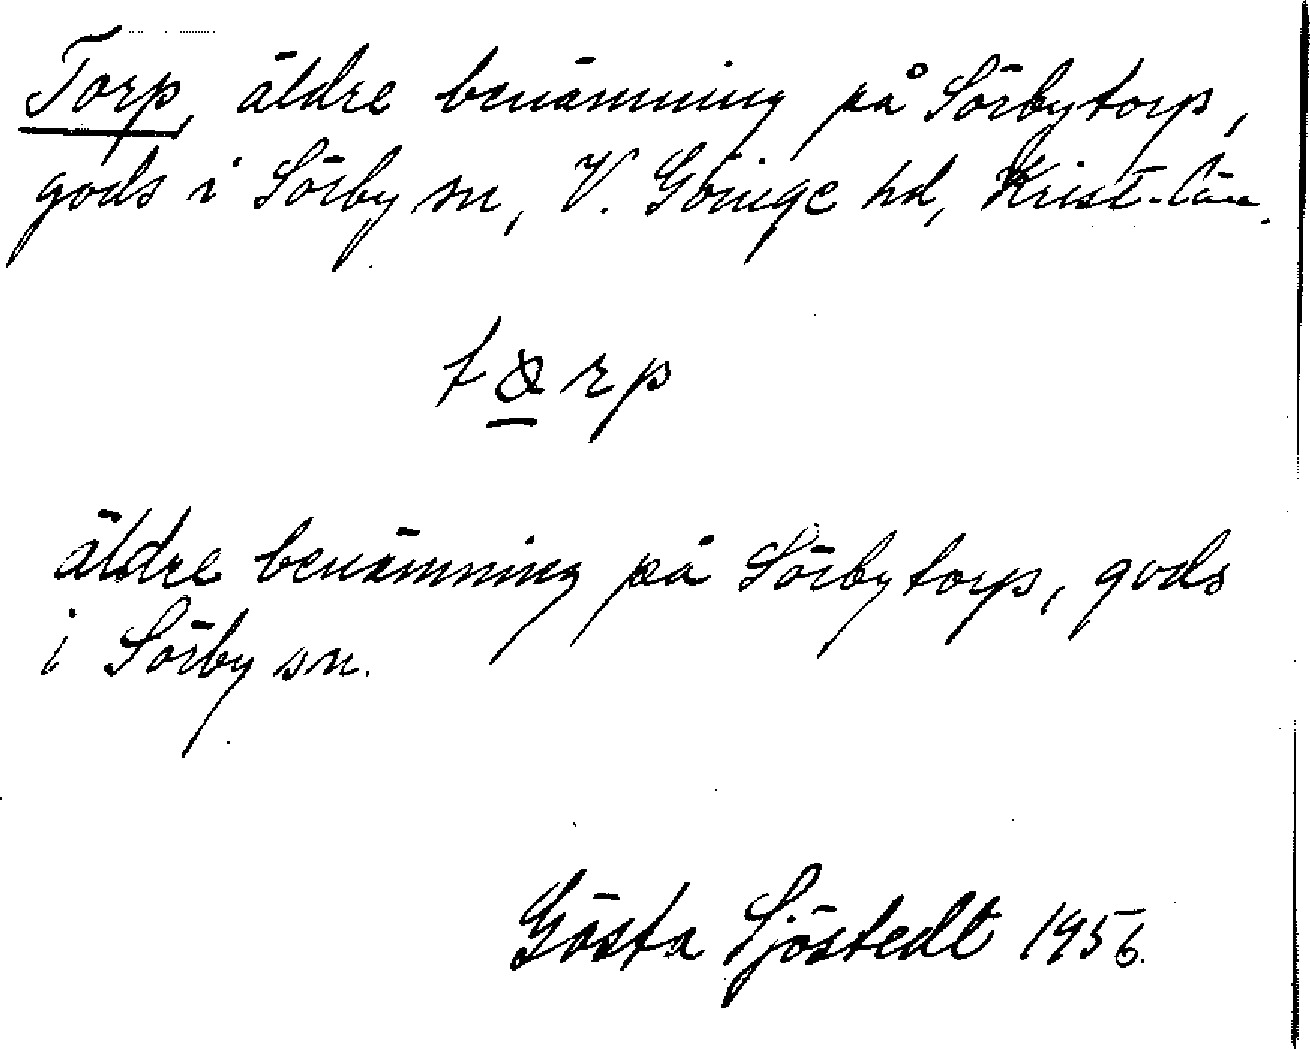 Torp, äldre benämning på Sörbytorp,
gods i Sörby sn, V. Göinge hd, Krist. län.
äldre benämning på Sörbytorp, gods
i Sörby sn.
Gösta Sjöstedt 1956.